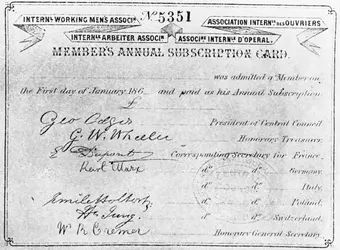 INTERNL WORKING MEN'S ASSOCIN No 5351 ASSOCIATION INTERNLE DES OUVRIERS
INTERNLE ARBEITER ASSOCIN ASSOCNE INTERNLE D'OPERAI.
MEMBER'S ANNUAL SUBSCRIPTION CARD.
was admitted a Member on
the First day of January 186 and paid as his Annual Subscription
£
Geo Odger President of Central Council
G. W. Wheeler Honorary Treasurer
E Dupont Corresponding Secretary for France
Karl Marx do do Germany
do do Italy
Emile Holtorp do do Poland
H Jung do do Switzerland
W R Cremer Honorary General Secretary